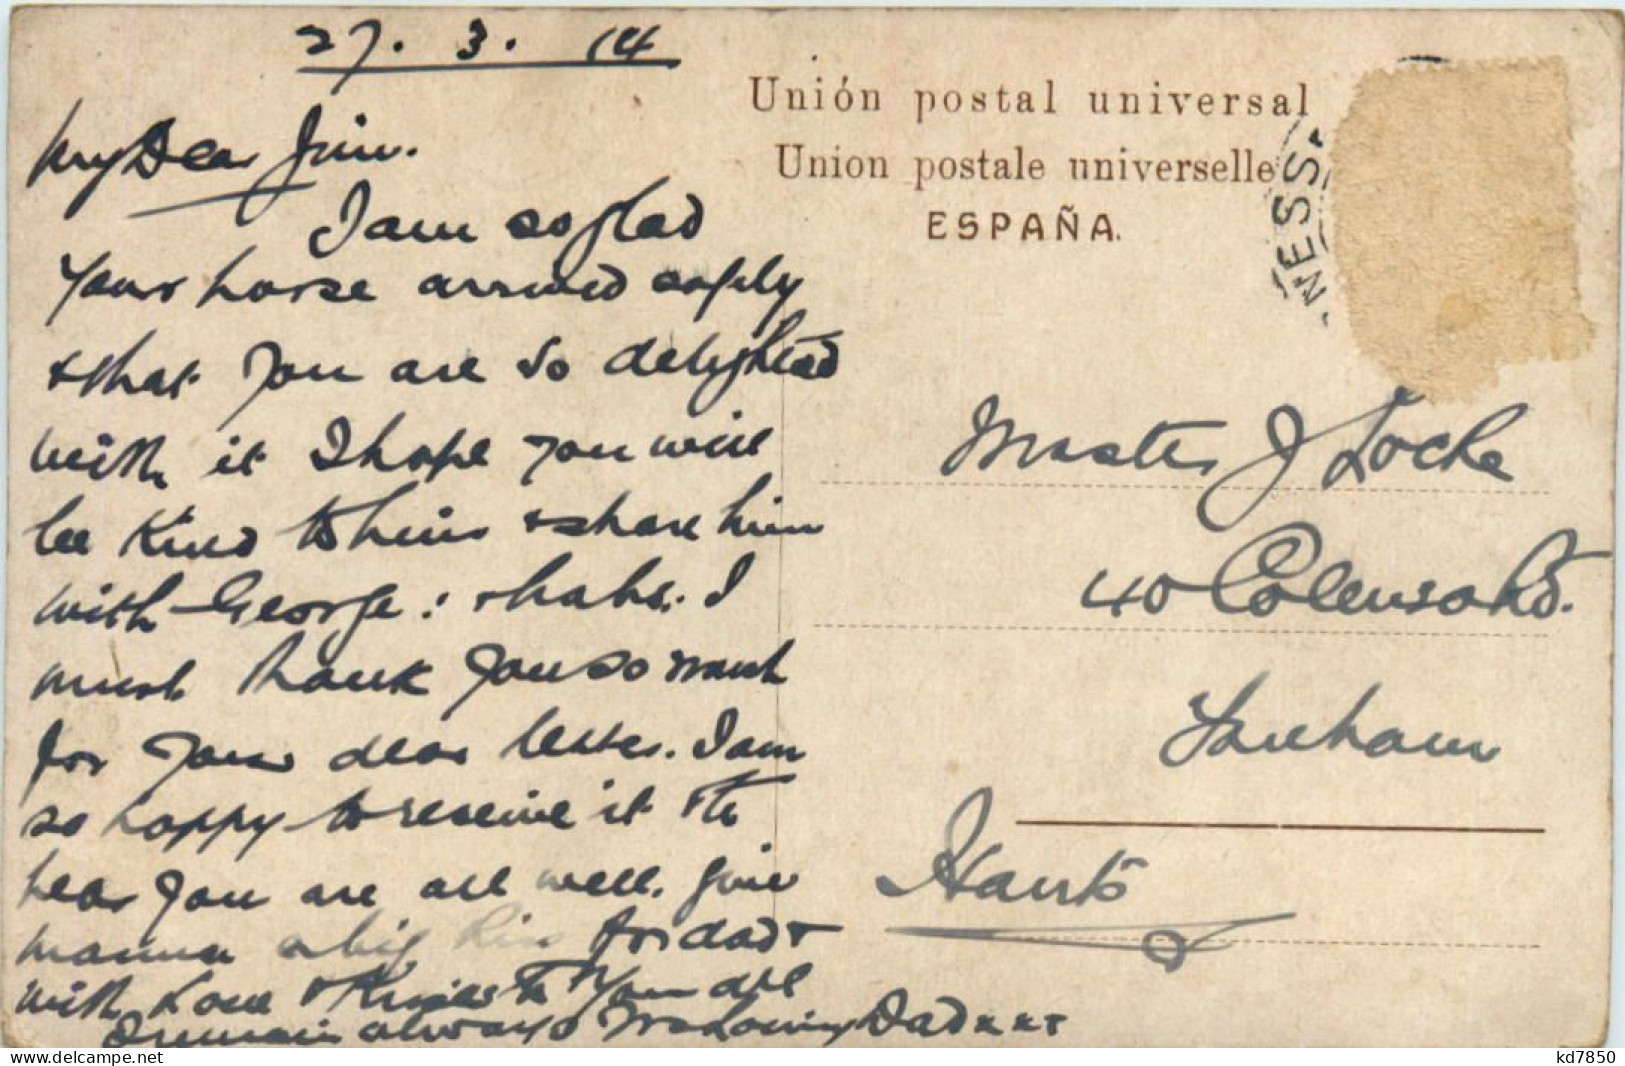 27. 3. 14
My Dear Jim.
I am so glad
your horse arrived safely
& that you are so delighted
with it I hope you will
be kind to him & share him
with George: & babs. I
must thank you so much
for your dear letter. I am
so happy to receive it & to
hear you are all well. give
mamma a big kiss for dad &
with Love & Kisses to you all
I remain always Loving Dad xxx
Unión postal universal
Union postale universelle
ESPAÑA.
NESS
Master J Locke
40 Colenso Rd.
Fareham
Hants
delcampe.net
kd7850